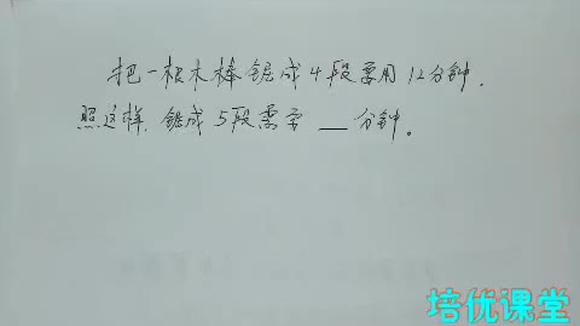 把一根木棒锯成4段要用12分钟.
照这样,锯成5段需要__分钟。
培优课堂